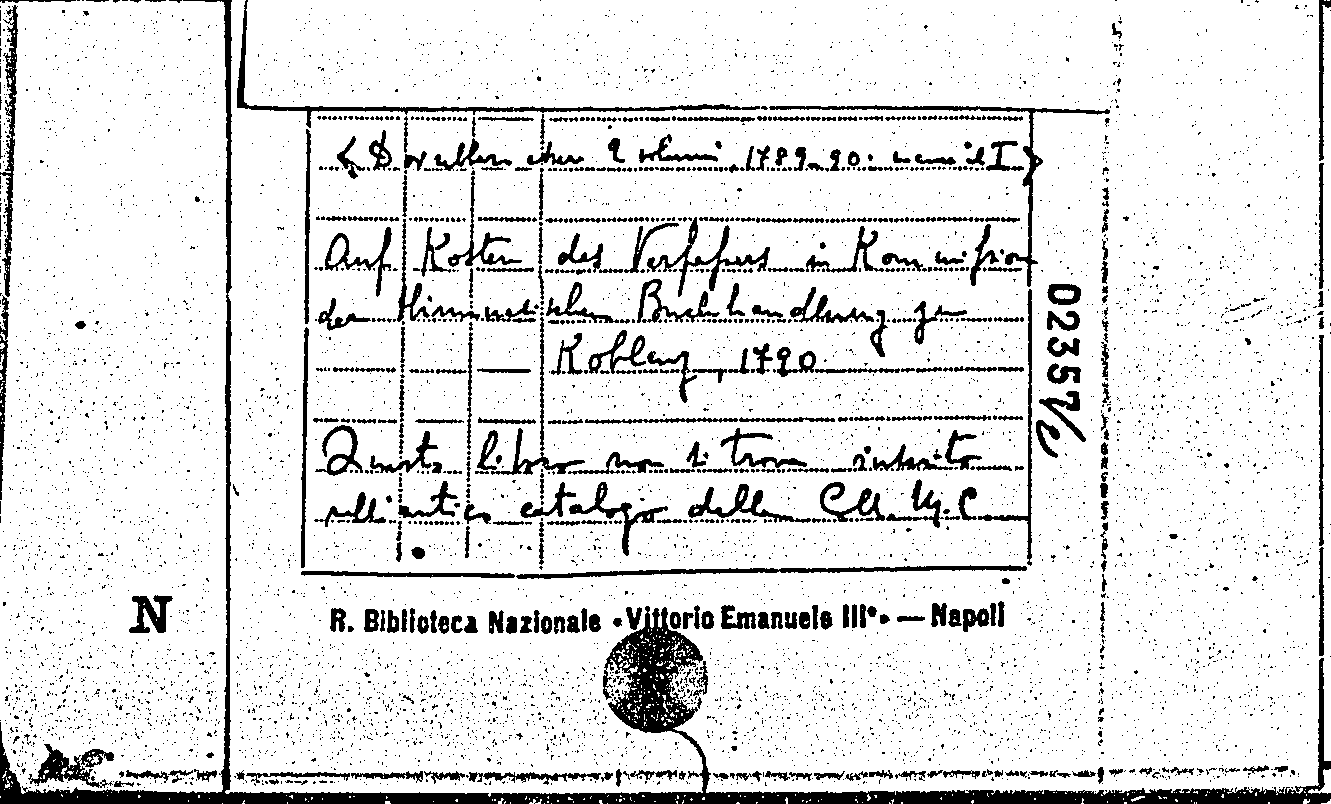 < Dovrebbero essere 2 volumi, 1789-90. manca il I >
Auf Kosten des Verfaßers in Kommißion
der Himmetischen Buchhandlung zu
Koblenz, 1790
Questo libro non si trova inserito
nell'antico catalogo della
02357/c
R. Biblioteca Nazionale «Vittorio Emanuele III°» — Napoli
N